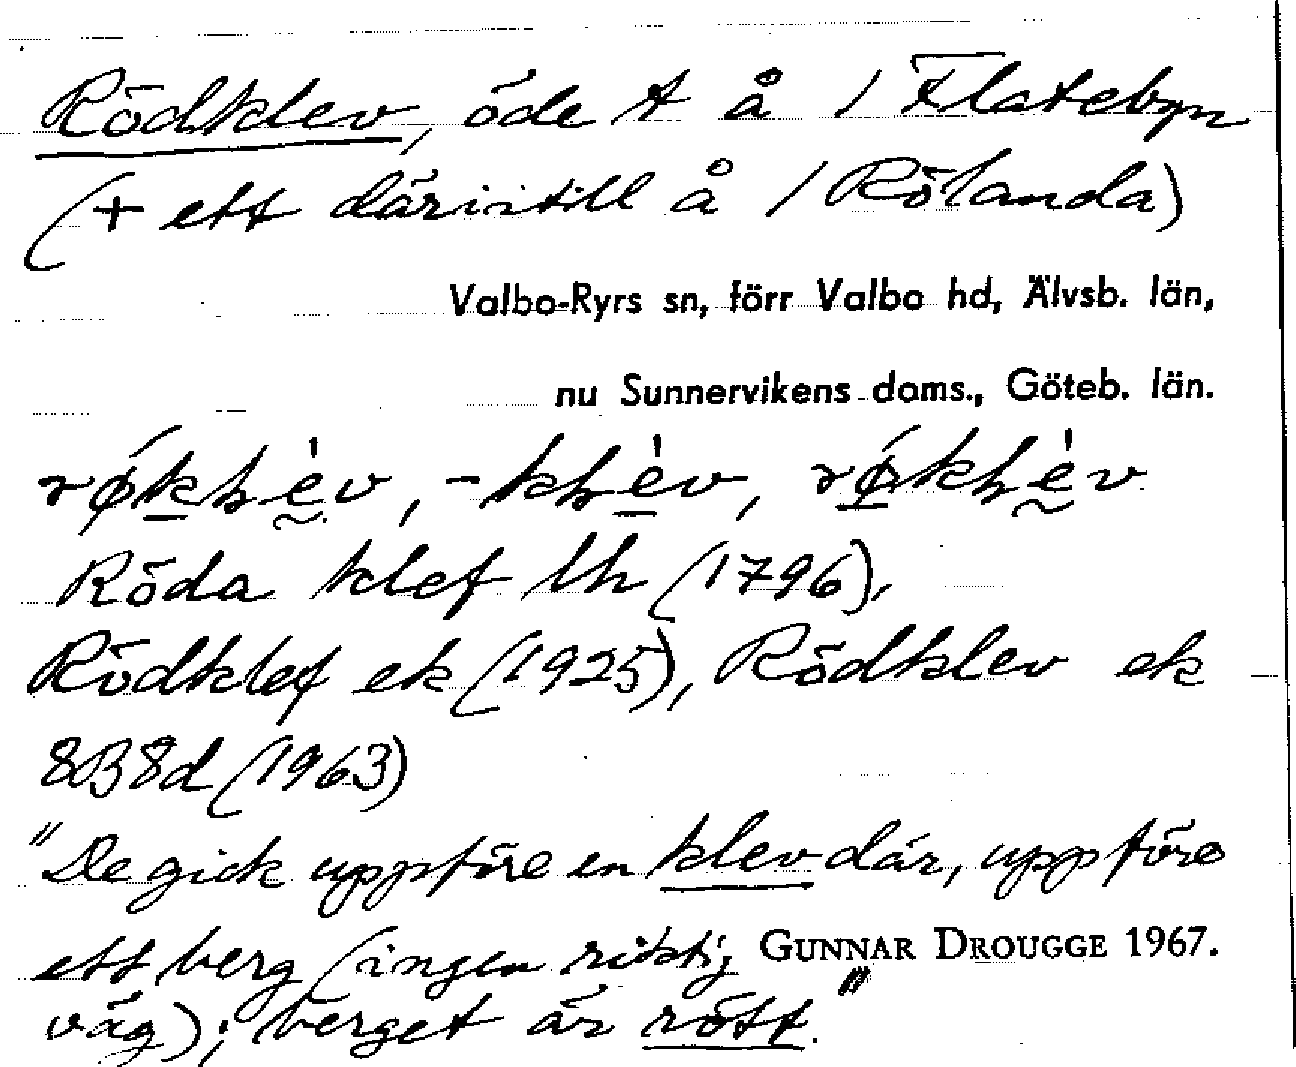 Rödklev, öde t å 1 Flatebyn
(+ ett därintill å 1 Rölanda)
Valbo-Ryrs sn, förr Valbo hd, Älvsb. län,
nu Sunnervikens doms., Göteb. län.
Röda klef lh (1796),
Rödklef ek (1925), Rödklev ek
8B8d (1963)
"De gick uppföre en klev där, uppföre
ett berg (ingen riktig
GUNNAR DROUGGE 1967.
väg); berget är rött."